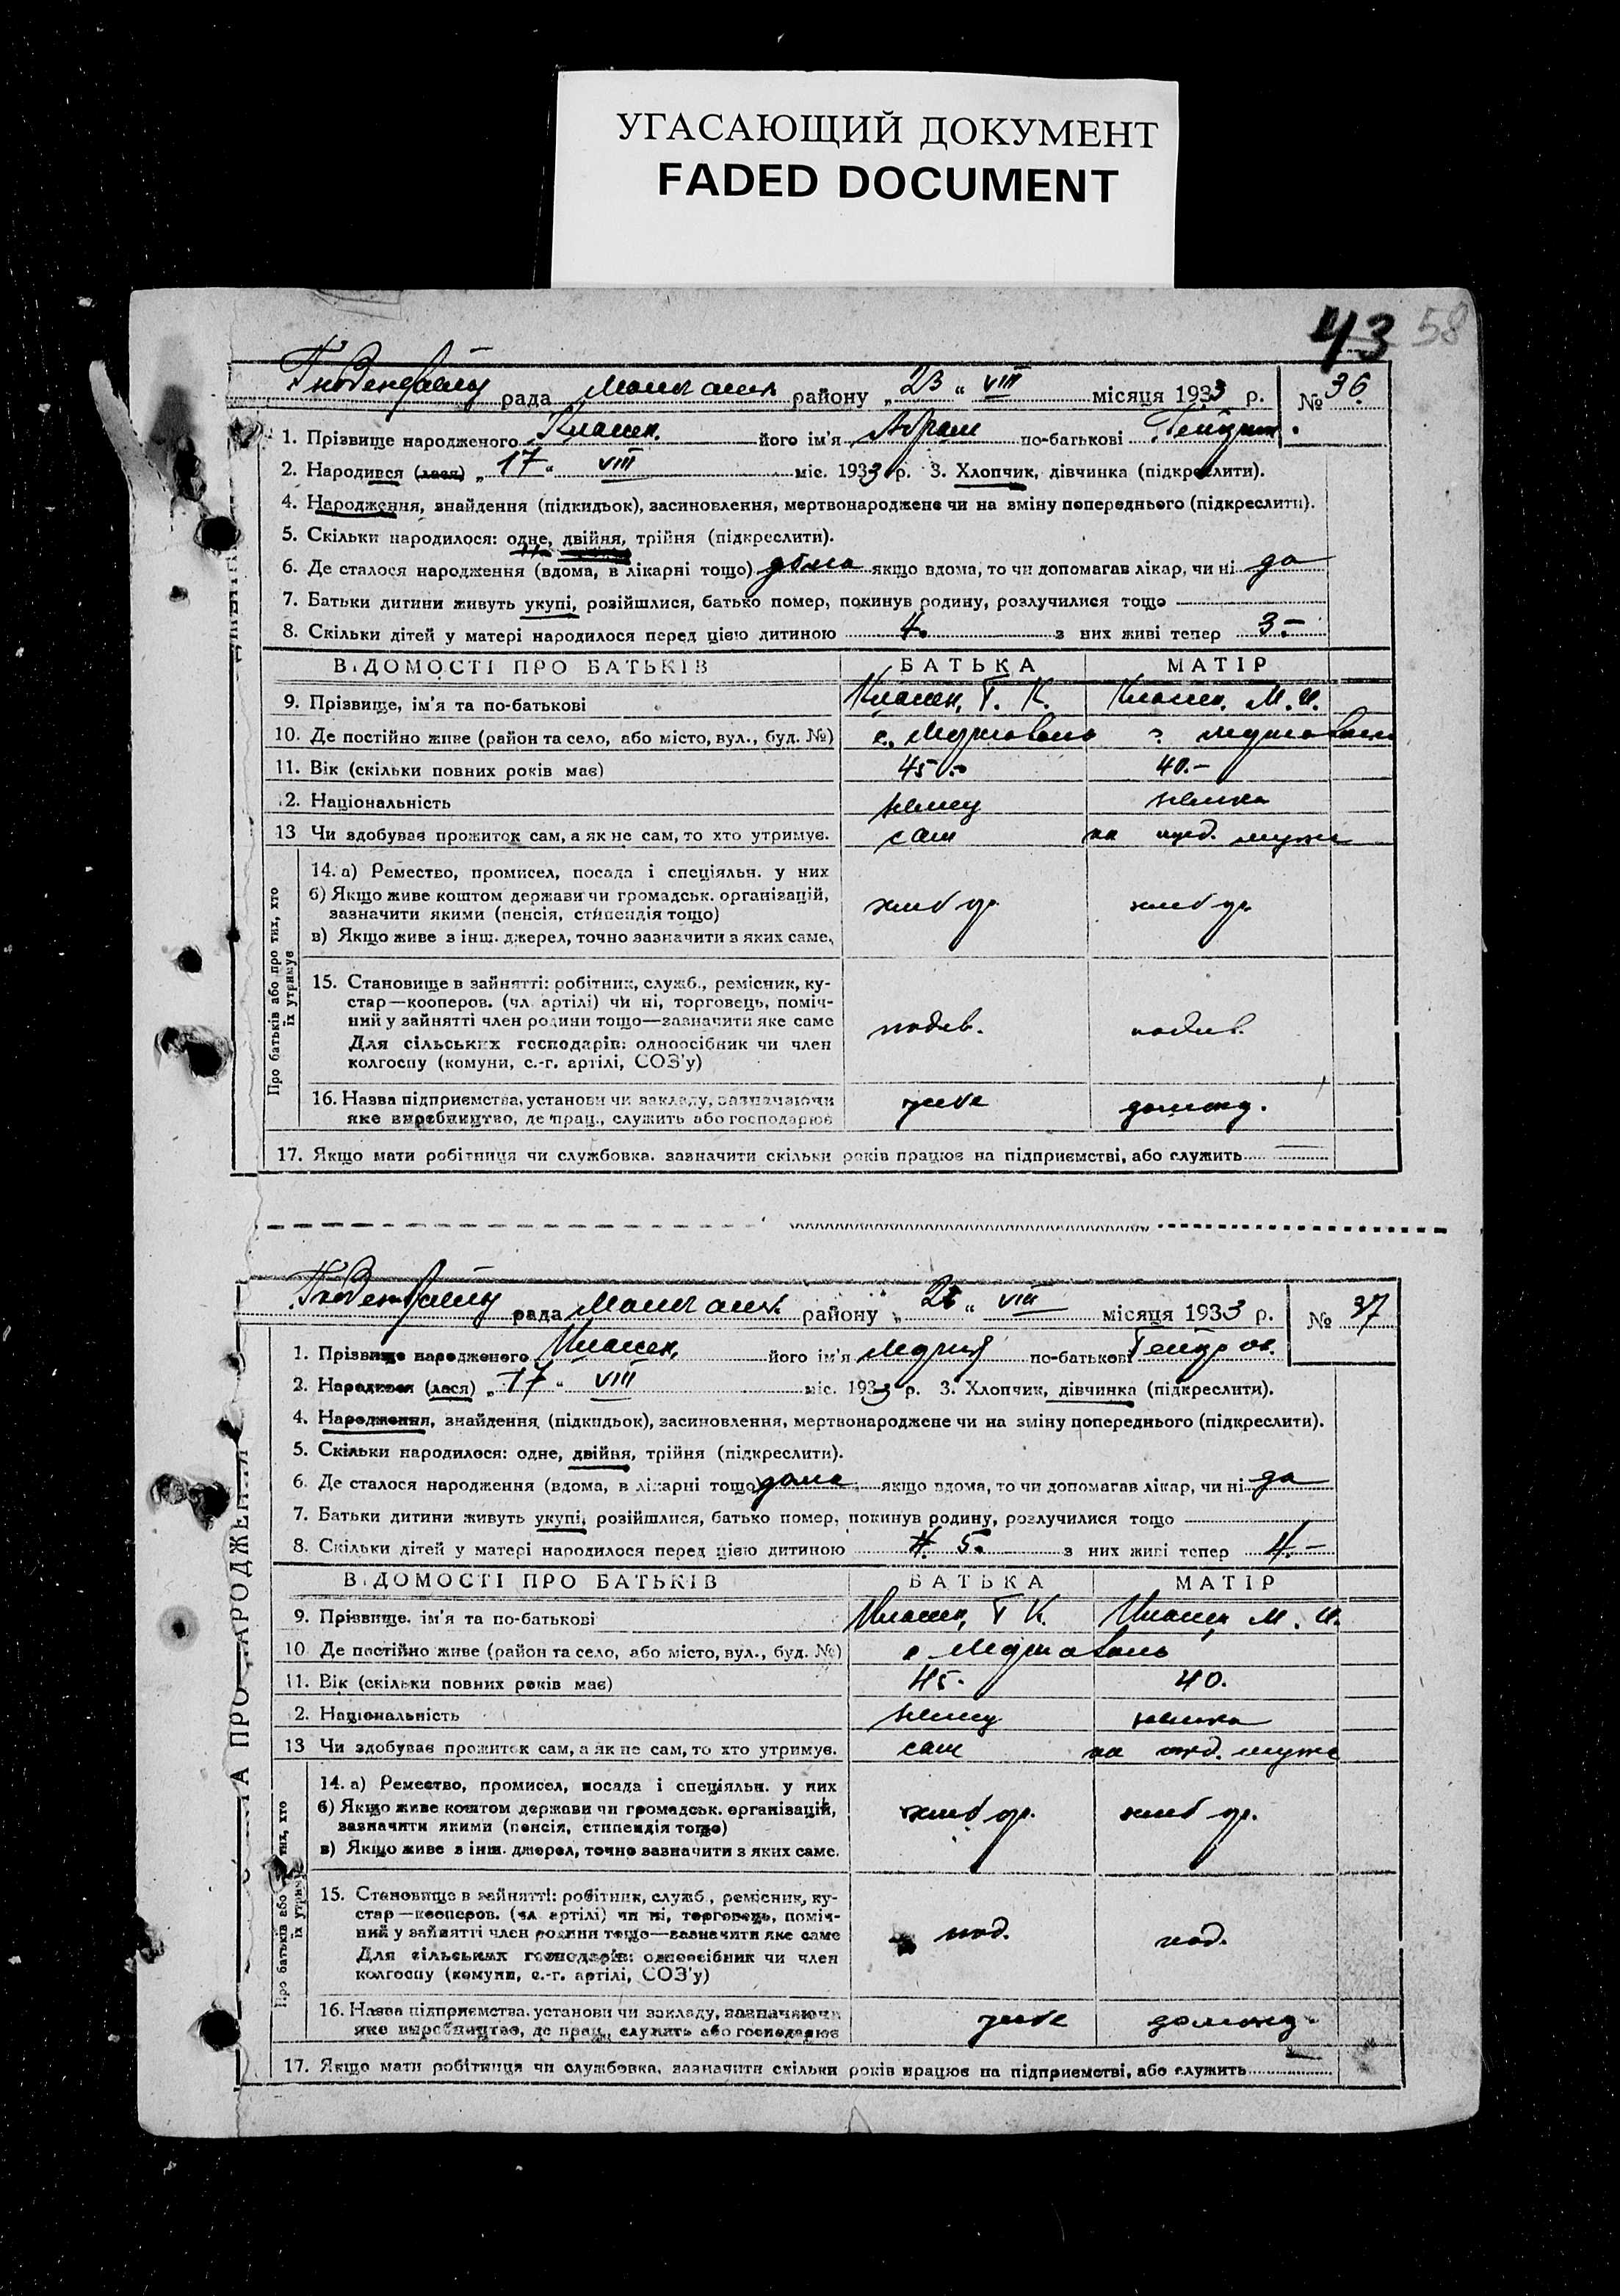 УГАСАЮЩИЙ ДОКУМЕНТ
FADED DOCUMENT
43 58
рада районy „23" VIII місяця 1933 р. № 36
1. Прізвище народженого Классен. його ім'я Абрам по-батькові
2. Народився (лася) „17" VIII міс. 1933 р. 3. Хлопчик, дівчинка (підкреслити).
4. Народження, знайдення (підкидьок), засиновлення, мертвонароджене чи на зміну попереднього (підкреслити).
5. Скільки народилося: одне, двійня, трійня (підкреслити).
6. Де сталося народження (вдома, в лікарні тощо) дома якщо вдома, то чи допомагав лікар, чи ні да
7. Батьки дитини живуть укупі, розійшлися, батько помер, покинув родину, розлучилися тощо
8. Скільки дітей у матері народилося перед цією дитиною 4. з них живі тепер 3.-
ВІДОМОСТІ ПРО БАТЬКІВ БАТЬКА МАТІР
9. Прізвище, ім'я та по-батькові Классен, Г. К. Классен. М. И.
10. Де постійно живе (район та село, або місто, вул., буд. №)
11. Вік (скільки повних років має) 45.- 40.-
12. Національність немец немка
13 Чи здобуває прожиток сам, а як не сам, то хто утримує. сам на мужа
Про батьків або про тих, хто їх утримує
14. а) Ремество, промисел, посада і спеціяльн. у них
б) Якщо живе коштом держави чи громадськ. організацій,
зазначити якими (пенсія, стипендія тощо)
в) Якщо живе з інш. джерел, точно зазначити з яких саме.
хлебор. хлебор.
15. Становище в зайнятті: робітник, служб., ремісник, ку-
стар—кооперов. (чл. артілі) чи ні, торговець, поміч-
ний у зайнятті член родини тощо—зазначити яке саме
Для сільських господарів: одноосібник чи член
колгоспу (комуни, с.-г. артілі, СОЗ'у)
16. Назва підприємства, установи чи закладу, зазначаючи
яке виробництво, де прац., служить або господарює
17. Якщо мати робітниця чи службовка, зазначити скільки років працює на підприємстві, або служить
рада районy „ " VIII місяця 1933 р. № 37
1. Прізвище народженого Классен. його ім'я Мария по-батькові
2. Народився (лася) „17" VIII міс. 1933 р. 3. Хлопчик, дівчинка (підкреслити).
4. Народження, знайдення (підкидьок), засиновлення, мертвонароджене чи на зміну попереднього (підкреслити).
5. Скільки народилося: одне, двійня, трійня (підкреслити).
6. Де сталося народження (вдома, в лікарні тощо) дома якщо вдома, то чи допомагав лікар, чи ні да
7. Батьки дитини живуть укупі, розійшлися, батько помер, покинув родину, розлучилися тощо
8. Скільки дітей у матері народилося перед цією дитиною 4. 5. з них живі тепер 4.-
ВІДОМОСТІ ПРО БАТЬКІВ БАТЬКА МАТІР
9. Прізвище, ім'я та по-батькові Классен, Г К Классен М. И.
10. Де постійно живе (район та село, або місто, вул., буд. №)
11. Вік (скільки повних років має) 45.- 40.
2. Національність немец немка
13 Чи здобуває прожиток сам, а як не сам, то хто утримує. сам на мужа
14. а) Ремество, промисел, посада і спеціяльн. у них
б) Якщо живе коштом держави чи громадськ. організацій,
зазначити якими (пенсія, стипендія тощо)
в) Якщо живе з інш. джерел, точно зазначити з яких саме.
хлебор. хлебор.
15. Становище в зайнятті: робітник, служб., ремісник, ку-
стар—кооперов. (чл. артілі) чи ні, торговець, поміч-
ний у зайнятті член родини тощо—зазначити яке саме
Для сільських господарів: одноосібник чи член
колгоспу (комуни, с.-г. артілі, СОЗ'у)
16. Назва підприємства, установи чи закладу, зазначаючи
яке виробництво, де прац., служить або господарює
17. Якщо мати робітниця чи службовка, зазначити скільки років працює на підприємстві, або служить